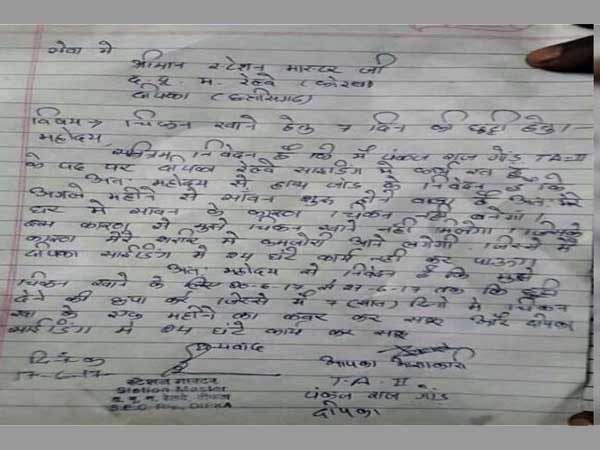 सेवा मे
श्रीमान स्टेशन मास्टर जी
द. पू. म. रेल्वे (कोरबा)
दीपिका (छत्तीसगढ़)
विषय→ चिकन खाने हेतु 7 दिन की छुट्टी हेतु।-
महोदय,
निवेदन है कि मैं पंकज राज गोंड TA-II
के पद पर दीपिका रेल्वे साइडिंग मे कार्य रत हूँ
अतः महोदय से हाथ जोड़ के निवेदन है कि
अगले महीने से सावन शुरू होने वाला है अतः मेरे
घर मे सावन के कारण चिकन नही बनेगा।
इस कारण से मुझे चिकन खाने नही मिलेगा। जिसके
कारण मेरे शरीर मे कमजोरी आने लगेगी जिससे मैं
दीपका साईडिंग मे 24 घंटे कार्य नही कर पाऊंगा
अतः महोदय से निवेदन है कि मुझे
चिकन खाने के लिए 20-6-17 से 27-6-17 तक कि छुट्टी
देने की कृपा करे जिससे मैं 7 (सात) दिनो मे चिकन
खा के एक महीने का कवर कर सकू और दीपका
साईडिंग मे 24 घंटे कार्य कर सकू
धन्यवाद
दिनांक आपका
17-6-17 T-A-II
स्टेशन मास्टर पंकज राज गोंड
Station Master दीपका
द. पू. म. रेलवे, दीपका
S.E.C. Rly., DIPKA